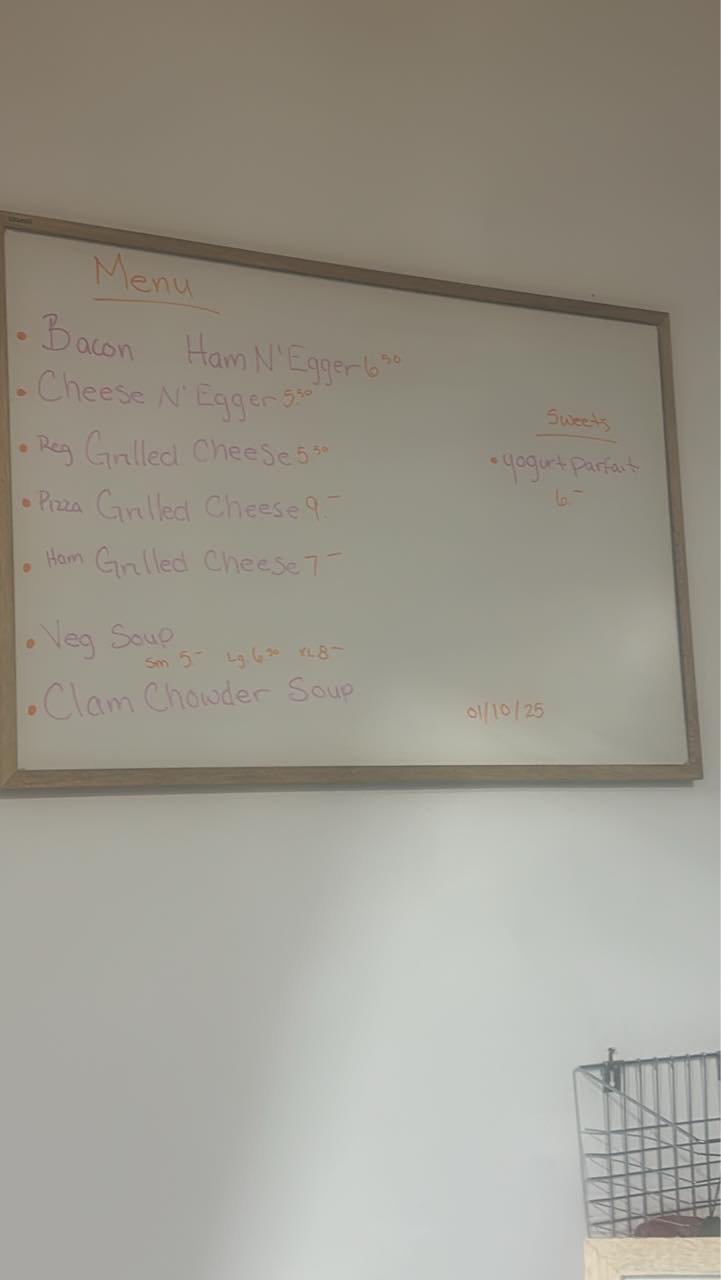 Menu
• Bacon Ham N' Egger 6.50
• Cheese N' Egger 5.50
• Reg Grilled Cheese 5.50
• Pizza Grilled Cheese 9.-
• Ham Grilled Cheese 7-
• Veg Soup
Sm 5.- Lg. 6.50 XL 8-
• Clam Chowder Soup
Sweets
• yogurt parfait
6.-
01/10/25